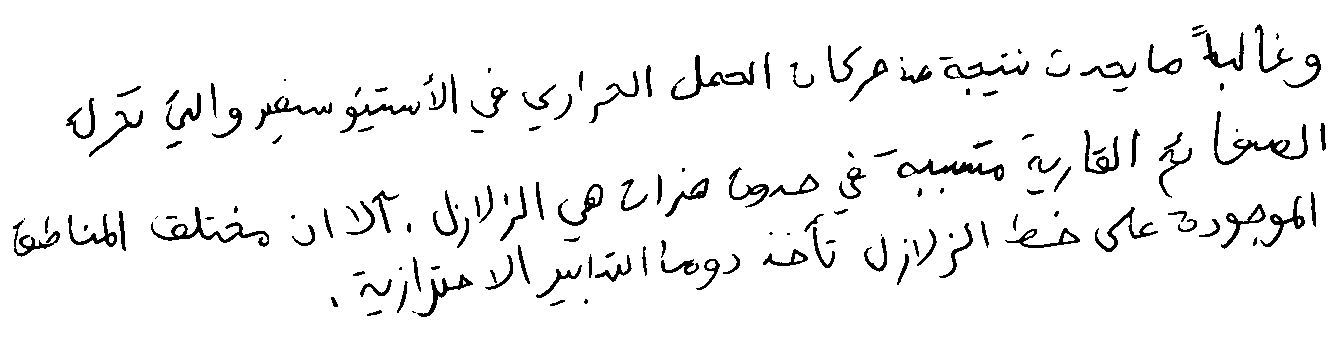 وغالباً ما يحدث نتيجة من حركات الحمل الحراري في الأستينو سفير والتي تحرك
الصفائح القارية متسببة في حدوث هزات هي الزلازل . آلا ان مختلف المناطق
الموجودة على خط الزلازل تأخذ دوما التدابير الاحترازية .